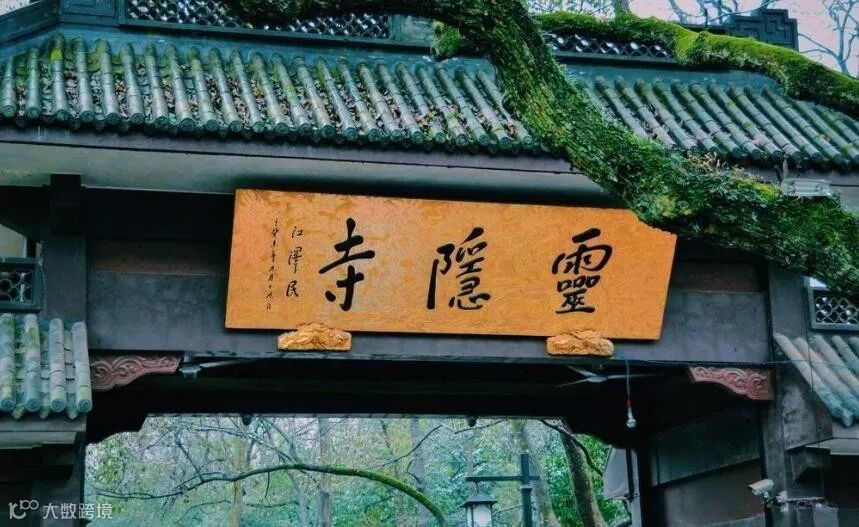 靈隱寺
江澤民
大数跨境